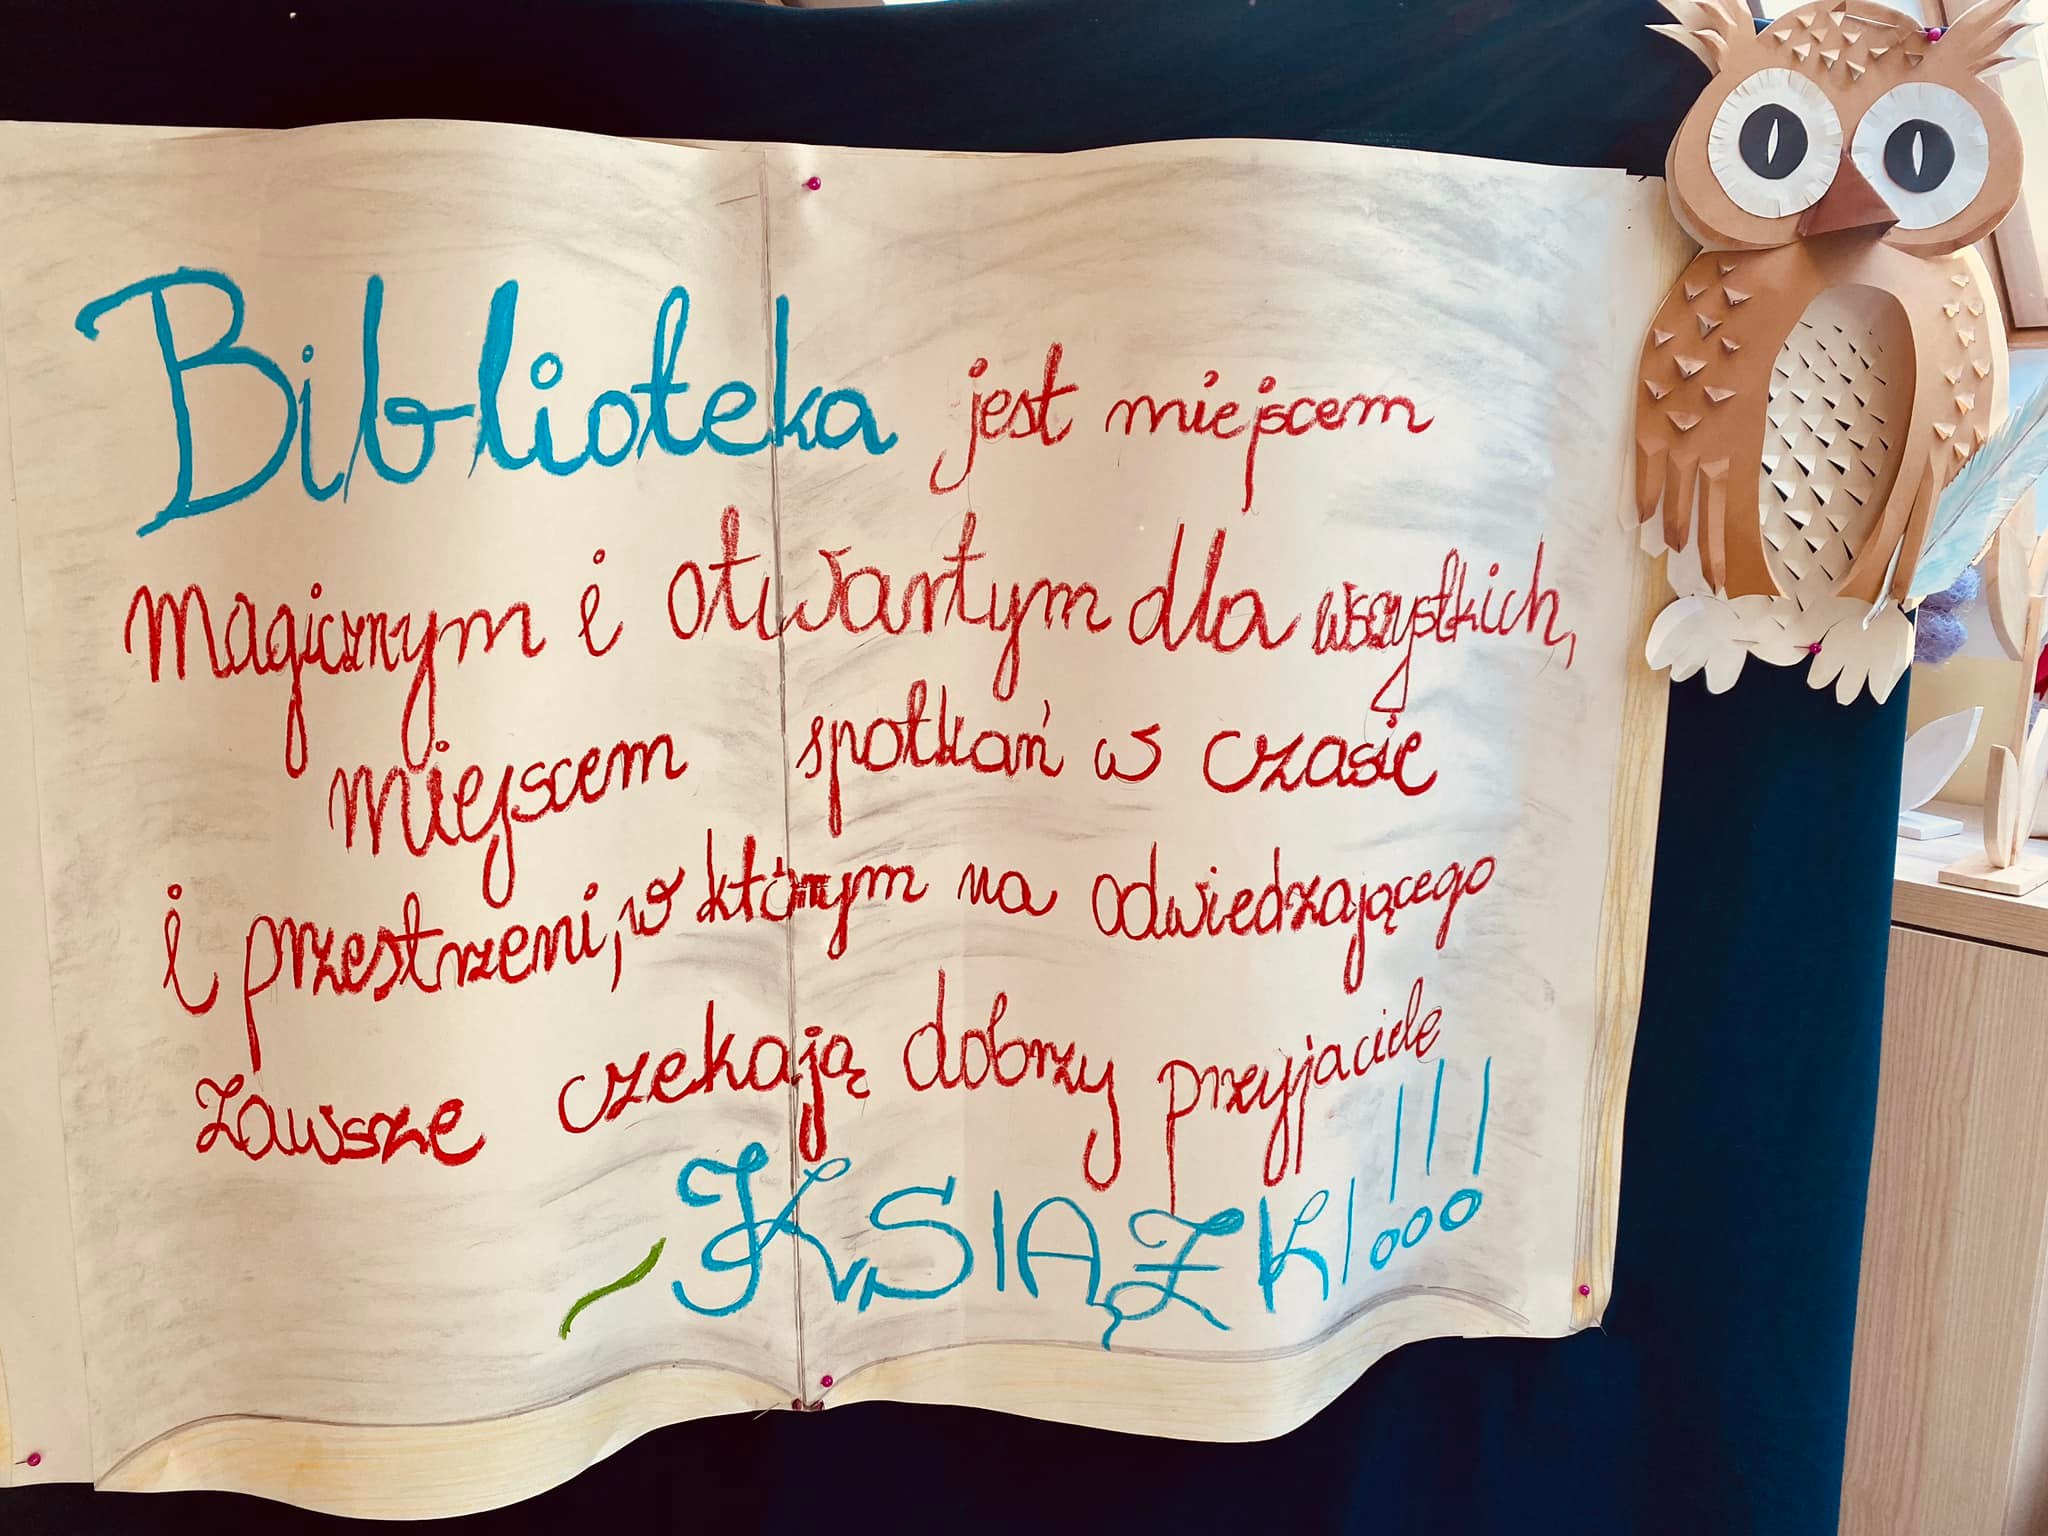 Biblioteka jest miejscem
magicznym i otwartym dla wszystkich,
miejscem spotkań w czasie
i przestrzeni, w którym na odwiedzającego
zawsze czekają dobrzy przyjaciele
- KSIĄŻKI!!!